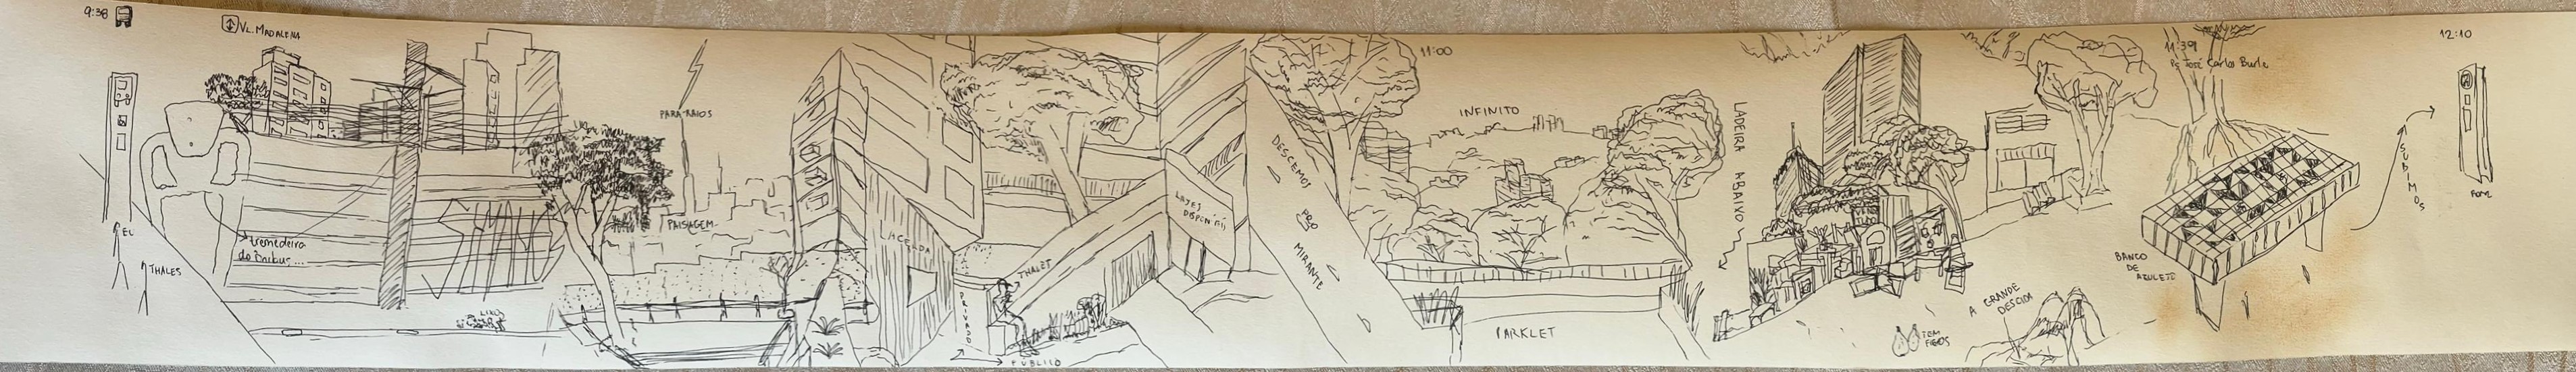 9:38
VL. MADALENA
EU
THALES
tremedeira
do ônibus...
LIXO
PARA-RAIOS
PAISAGEM
LACERDA
PRIVADO
PÚBLICO
THALES
LAJES
DISPONÍVEIS
DESCEMOS
MIRANTE
11:00
INFINITO
PARKLET
LADEIRA ABAIXO
TEM
FIGOS
A GRANDE
DESCIDA
11:39
Pç José Carlos Burle
BANCO
DE
AZULEJO
SUBIMOS
12:10